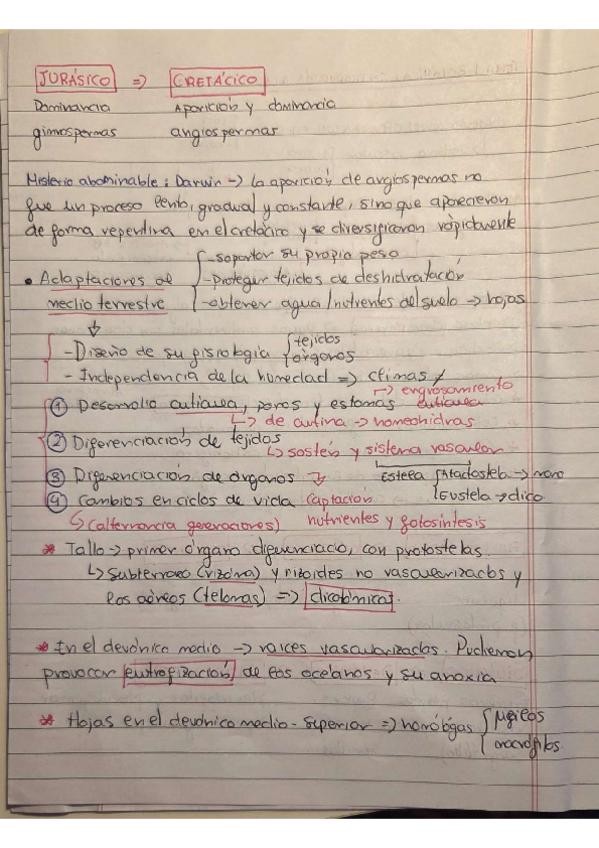 JURÁSICO => CRETÁCICO
Dominancia Aparición y dominancia
gimnospermas angiospermas
Misterio abominable: Darwin -> la aparición de angiospermas no
fue un proceso lento, gradual y constante, sino que aparecieron
de forma repentina en el cretácico y se diversificaron rápidamente
- soportar su propio peso
• Adaptaciones al - Proteger tejidos de deshidratación
medio terrestre - obtener agua/nutrientes del suelo -> hojas
- Diseño de su fisiología tejidos
órganos
- Independencia de la humedad => climas
-> engrosamiento cutícula
① Desarrollo cutícula, poros y estomas
-> de cutina -> homeohidras
② Diferenciación de tejidos
-> sostén y sistema vascular
③ Diferenciación de órganos Estela Atactostela -> mono
④ Cambios en ciclos de vida captación Eustela -> dico
(alternancia generaciones) nutrientes y fotosíntesis
* Tallo -> primer órgano diferenciado, con protostelas.
-> Subterráneo (rizoma) y rizoides no vascularizados y
los aéreos (telomas) => dicotómicas.
* En el devónico medio -> raíces vascularizadas. Pudieron
provocar eutrofización de los océanos y su anoxia
* Hojas en el devónico medio - superior => homólogas micrófilos
macrófilos